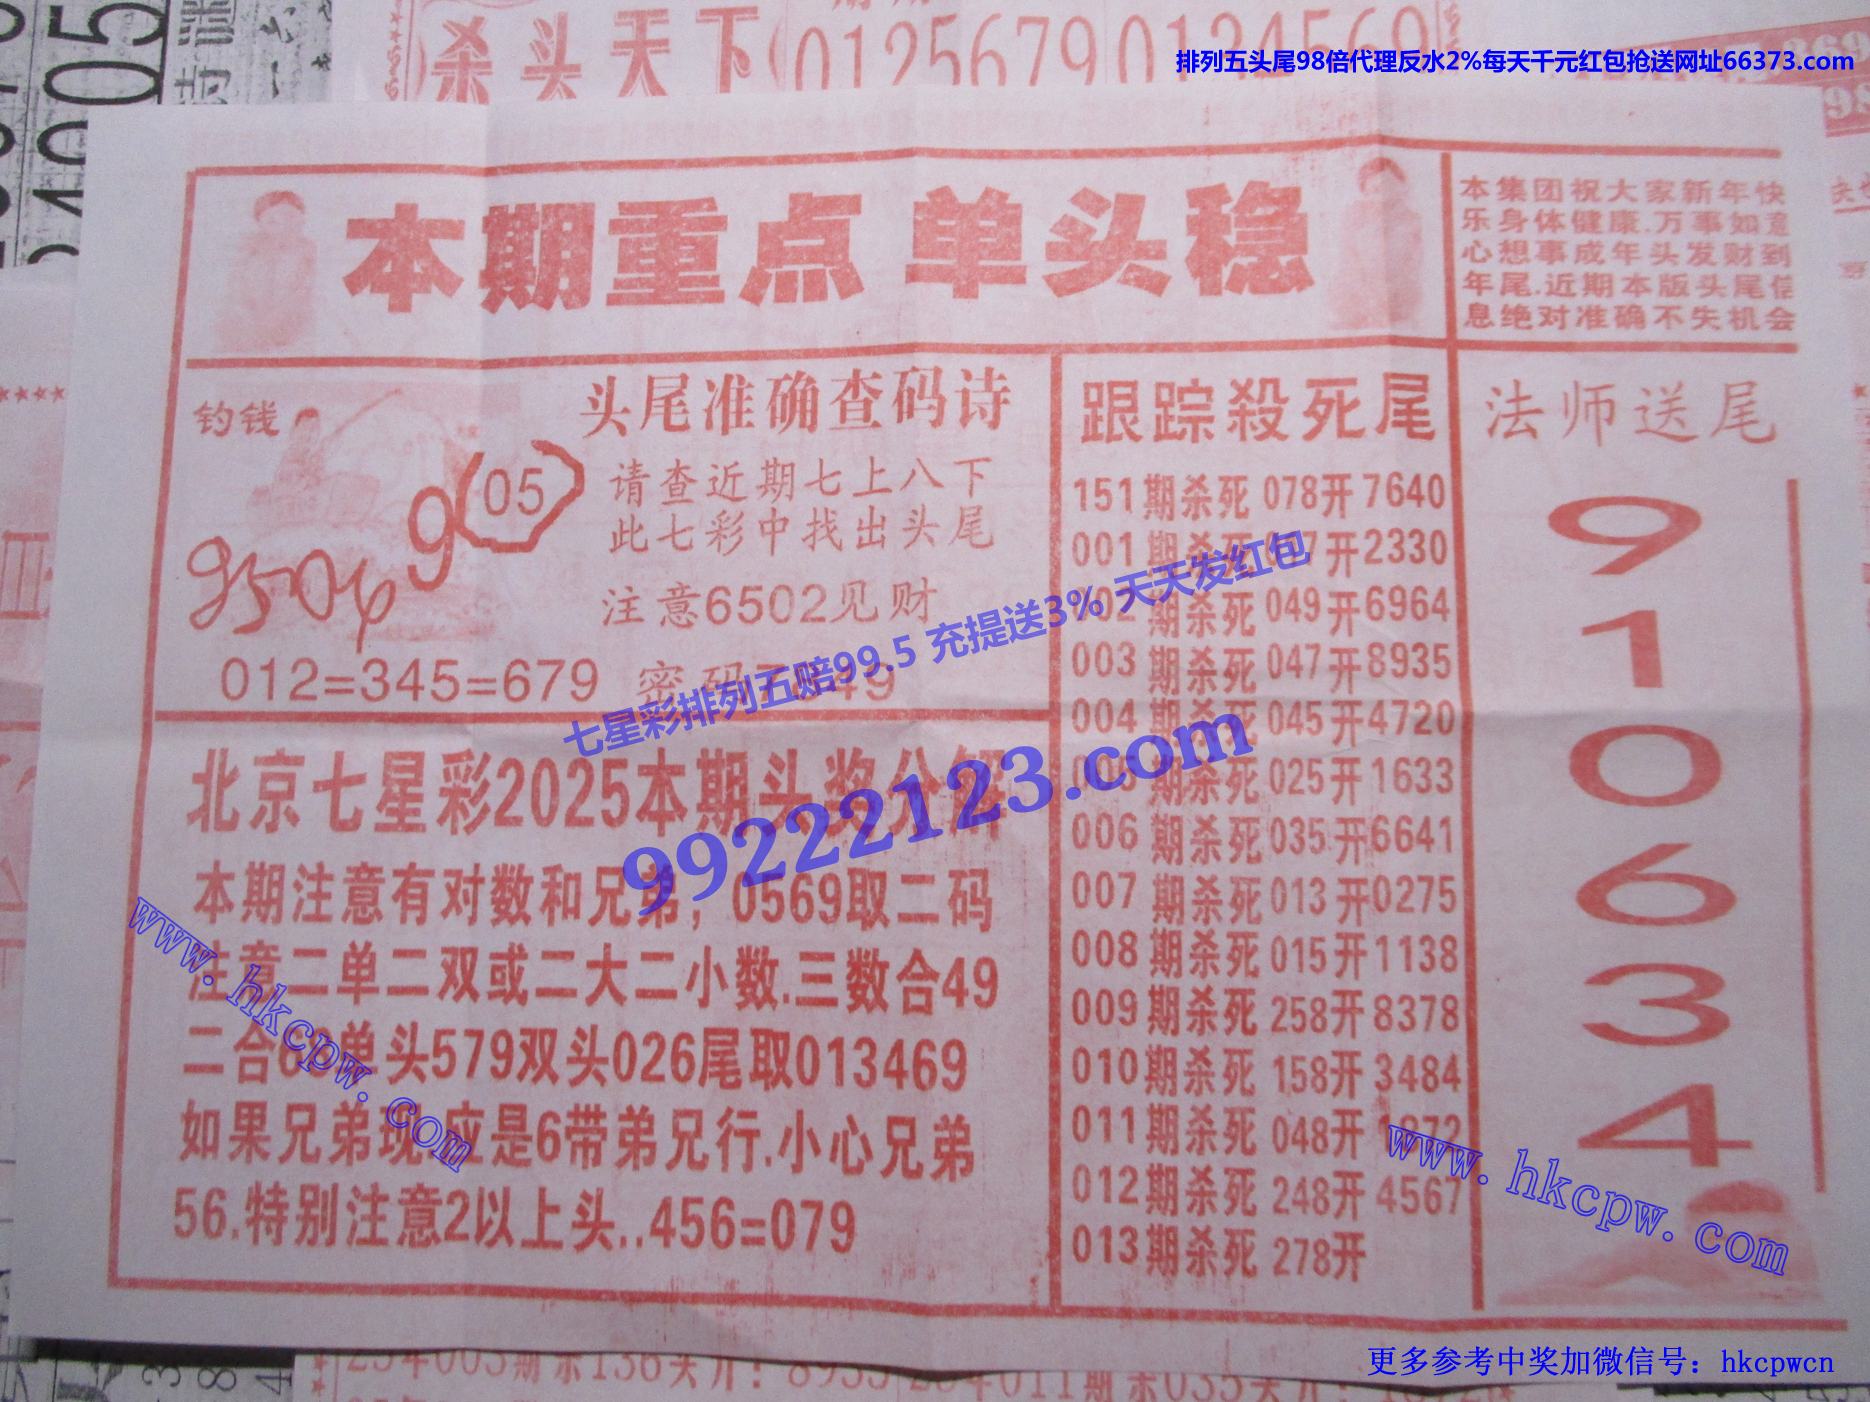 杀头天下
0125679
0134569
排列五头尾98倍代理反水2%每天千元红包抢送网址66373.com
本期重点 单头稳
本集团祝大家新年快
乐身体健康.万事如意
心想事成年头发财到
年尾.近期本版头尾信
息绝对准确不失机会
钓钱
9(05)
9504
头尾准确查码诗
请查近期七上八下
此七彩中找出头尾
注意6502见财
012=345=679 密码
北京七星彩2025本期头奖分解
本期注意有对数和兄弟,0569取二码
注意二单二双或二大二小数.三数合49
二合 单头579双头026尾取013469
如果兄弟现应是6带弟兄行.小心兄弟
56.特别注意2以上头..456=079
跟踪殺死尾
151期杀死078开7640
001期杀死 7开2330
002期杀死049开6964
003期杀死047开8935
004期杀死045开4720
005期杀死025开1633
006期杀死035开6641
007期杀死013开0275
008期杀死015开1138
009期杀死258开8378
010期杀死158开3484
011期杀死048开1672
012期杀死248开4567
013期杀死278开
法师送尾
9
1
0
6
3
4
七星彩排列五赔99.5 充提送3% 天天发红包
99222123.com
www.hkcpw.com
www.hkcpw.com
更多参考中奖加微信号：hkcpwcn